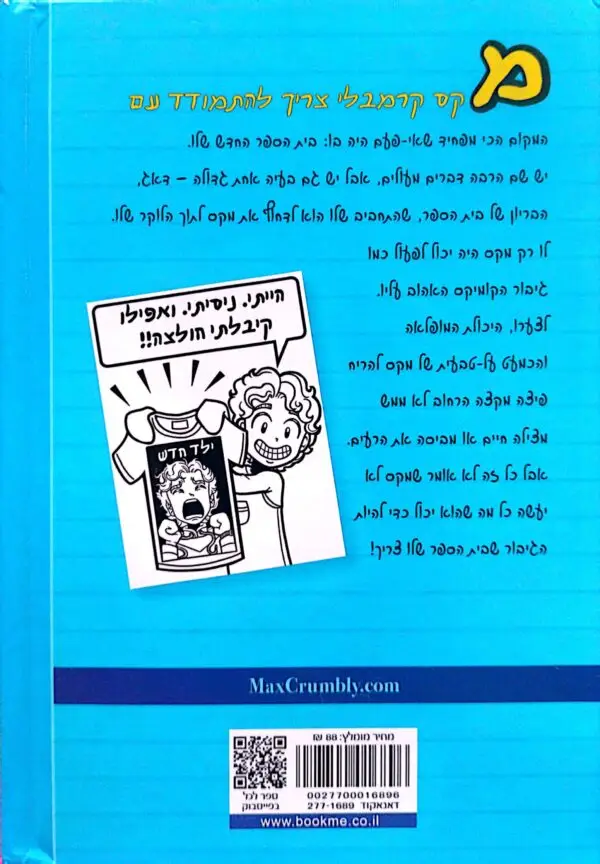 מקס קרמבלי צריך להתמודד עם
המקום הכי מפחיד שאי-פעם היה בו: בית הספר החדש שלו.
יש שם הרבה דברים מעולים, אבל יש גם בעיה אחת גדולה – דאג,
הבריון של בית הספר, שהתחביב שלו הוא לדחוף את מקס לתוך הלוקר שלו.
לו רק מקס היה יכול לפעול כמו
גיבור הקומיקס האהוב עליו.
לצערו, היכולת המופלאה
והכמעט על-טבעית של מקס להריח
פיצה מקצה הרחוב לא ממש
מצילה חיים או מביסה את הרעים.
אבל כל זה לא אומר שמקס לא
יעשה כל מה שהוא יכול כדי להיות
הגיבור שבית הספר שלו צריך!
הייתי. ניסיתי. ואפילו
קיבלתי חולצה!!
ילד חדש
MaxCrumbly.com
מחיר מומלץ: 88 ₪
0027700016896
דאנאקוד 277-1689
ספר לכל
בפייסבוק
www.bookme.co.il